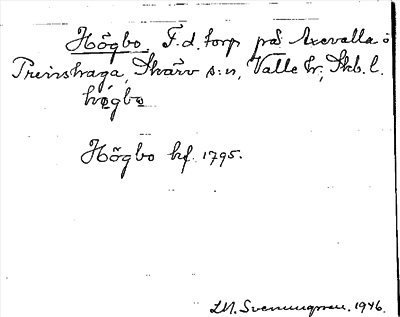 Högbo. F. d. torp på Axevalla o
Prinshaga, Skärv s:n, Valle hr, Skb. l.
høgbo
Högbo hf. 1795.
L.M. Svenungsson. 1946.